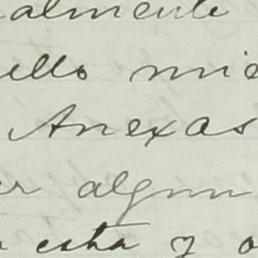 almente
ello mie
Anexas
er algun
esta y o